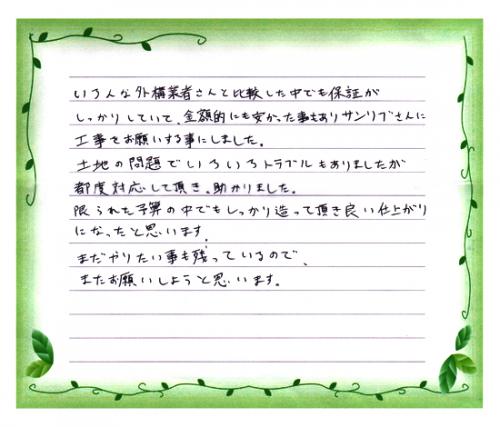 いろんな外構業者さんと比較した中でも保証が
しっかりしていて、金額的にも安かった事もありサンリブさんに
工事をお願いする事にしました。
土地の問題でいろいろトラブルもありましたが
都度対応して頂き、助かりました。
限られた予算の中でもしっかり造って頂き良い仕上がり
になったと思います。
まだやりたい事も残っているので、
またお願いしようと思います。